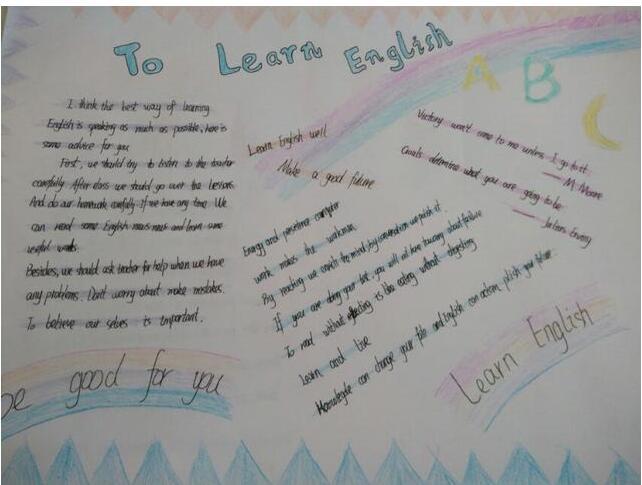 To Learn English
A B C
I think the best way of learning
English is speaking as much as possible, here is
some advice for you
First, we should try to listen to the teacher
carefully. After class we should go over the lessons.
And do our homework carefully. If we have any time We
can read some English news and learn some
useful words.
Besides, we should ask teacher for help when we have
any problems. Don't worry about make mistakes.
To believe our selves is important.
Learn English well
Make a good future
Victory won't come to me unless I go to it.
— M. Moore
Goals determine what you are going to be
Energy and persistence conquer
work makes the workman
By reading we enrich the mind; by conversation we polish it.
If you are doing your best, you will not have to worry about failure
To read without reflecting is like eating without digesting
Learn and live
Knowledge can change your fate and English can polish your future
be good for you
Learn English